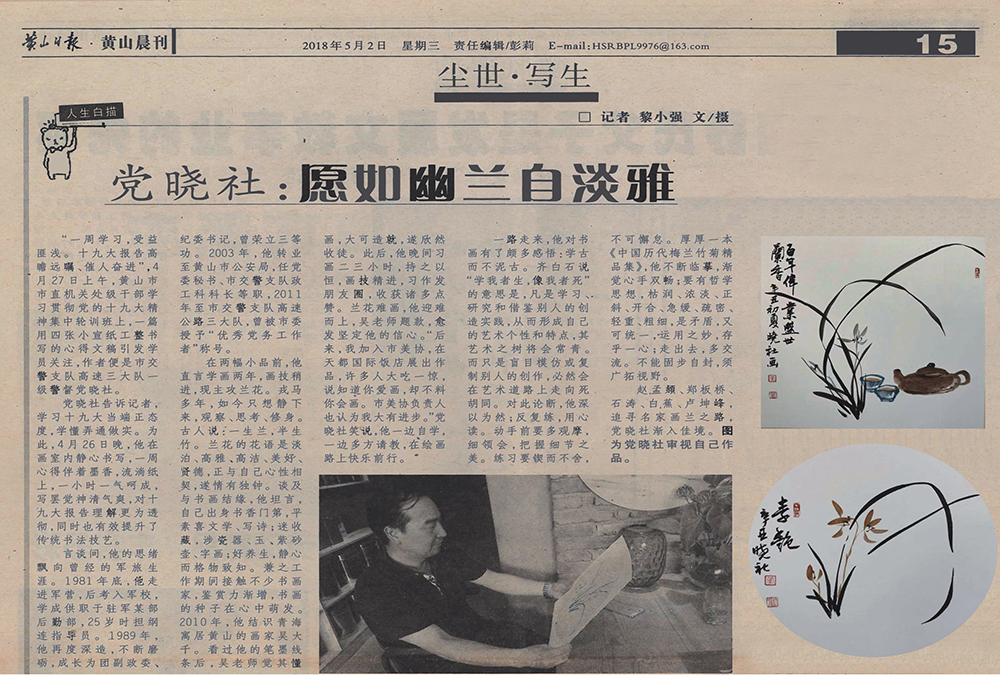 黄山日报·黄山晨刊
2018年5月2日 星期三 责任编辑/彭莉 E-mail:HSRBPL9976@163.com
15
尘世·写生
人生白描
□ 记者 黎小强 文/摄
党晓社:愿如幽兰自淡雅
“一周学习,受益
匪浅。十九大报告高
瞻远瞩、催人奋进”,4
月27日上午,黄山市
市直机关处级干部学
习贯彻党的十九大精
神集中轮训班上,一篇
用四张小宣纸工整书
写的心得交稿引发学
员关注,作者便是市交
警支队高速三大队一
级警督党晓社。
党晓社告诉记者,
学习十九大当端正态
度,学懂弄通做实。为
此,4月26日晚,他在
画室内静心书写,一周
心得伴着墨香,流淌纸
上,一小时一气呵成,
写罢觉神清气爽,对十
九大报告理解更为透
彻,同时也有效提升了
传统书法技艺。
言谈间,他的思绪
飘向曾经的军旅生
涯。1981年底,他走
进军营,后考入军校,
学成供职于驻军某部
后勤部,25岁时担纲
连指导员。1989年,
他再度深造,不断磨
砺,成长为团副政委、
纪委书记,曾荣立三等
功。2003年,他转业
至黄山市公安局,任党
委秘书、市交警支队政
工科科长等职,2011
年至市交警支队高速
公路三大队,曾被市委
授予“优秀党务工作
者”称号。
在两幅小品前,他
直言学画两年,画技稍
进,现主攻兰花。戎马
多年,如今只想静下
来,观察、思考、修身。
古人说:一生兰,半生
竹。兰花的花语是淡
泊、高雅、高洁、美好、
贤德,正与自己心性相
契,遂情有独钟。谈及
与书画结缘,他坦言,
自己出身书香门第,平
素喜文学、写诗;迷收
藏,涉瓷器、玉、紫砂
壶、字画;好养生,静心
而格物致知。兼之工
作期间接触不少书画
家,鉴赏力渐增,书画
的种子在心中萌发。
2010年,他结识青海
寓居黄山的画家吴大
千。看过他的笔墨线
条后,吴老师觉其懂
画,大可造就,遂欣然
收徒。此后,他晚间习
画二三小时,持之以
恒,画技精进,习作发
朋友圈,收获诸多点
赞。兰花难画,他迎难
而上,吴老师题款,愈
发坚定他的信心。“后
来,我加入市美协,在
天都国际饭店展出作
品,许多人大吃一惊,
说知道你爱画,却不料
你会画。市美协负责人
也认为我大有进步。”党
晓社笑说,他一边自学,
一边多方请教,在绘画
路上快乐前行。
一路走来,他对书
画有了颇多感悟:学古
而不泥古。齐白石说
“学我者生,像我者死”
的意思是,凡是学习、
研究和借鉴别人的创
造实践,从而形成自己
的艺术个性和特点,其
艺术之树将会常青。
而只是盲目模仿或复
制别人的创作,必然会
在艺术道路上走向死
胡同。对此论断,他深
以为然;反复练,用心
读。动手前要多观摩,
细领会,把握细节之
美。练习要锲而不舍,
不可懈怠。厚厚一本
《中国历代梅兰竹菊精
品集》,他不断临摹,渐
觉心手双畅;要有哲学
思想,枯润、浓淡、正
斜、开合、急缓、疏密、
轻重、粗细,是矛盾,又
可统一,运用之妙,存
乎一心;走出去,多交
流。不能固步自封,须
广拓视野。
赵孟頫、郑板桥、
石涛、白蕉、卢坤峰,
追寻名家画兰之路,
党晓社渐入佳境。图
为党晓社审视自己作
品。
百年伟业盛世
兰香 辛丑初夏晓社画
辛丑晓社